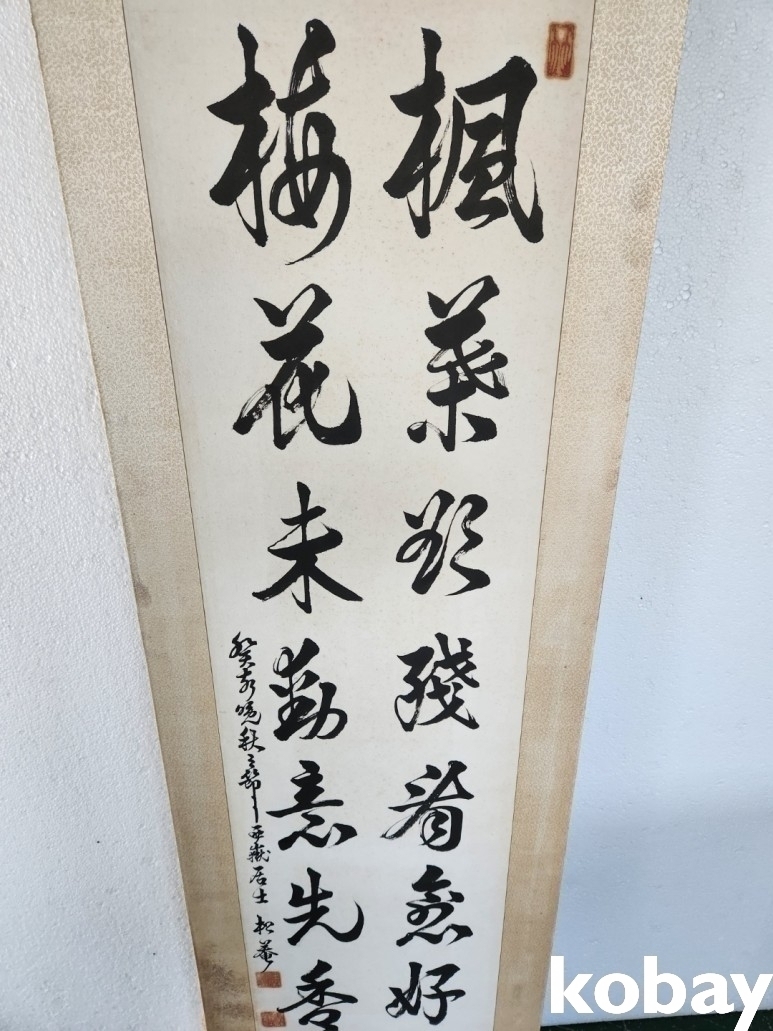 楓葉欲殘看愈好
梅花未動意先香
癸亥晩秋之節 居士 松菴
kobay